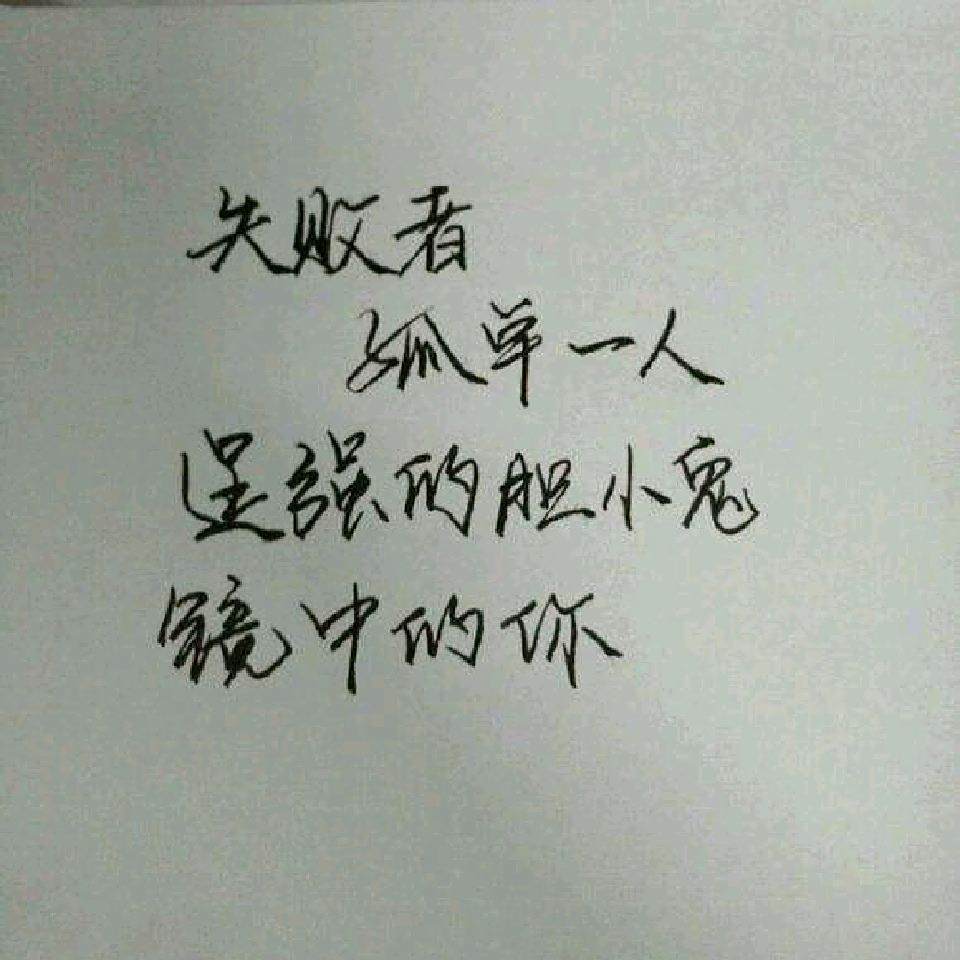 失败者
孤单一人
逞强的胆小鬼
镜中的你